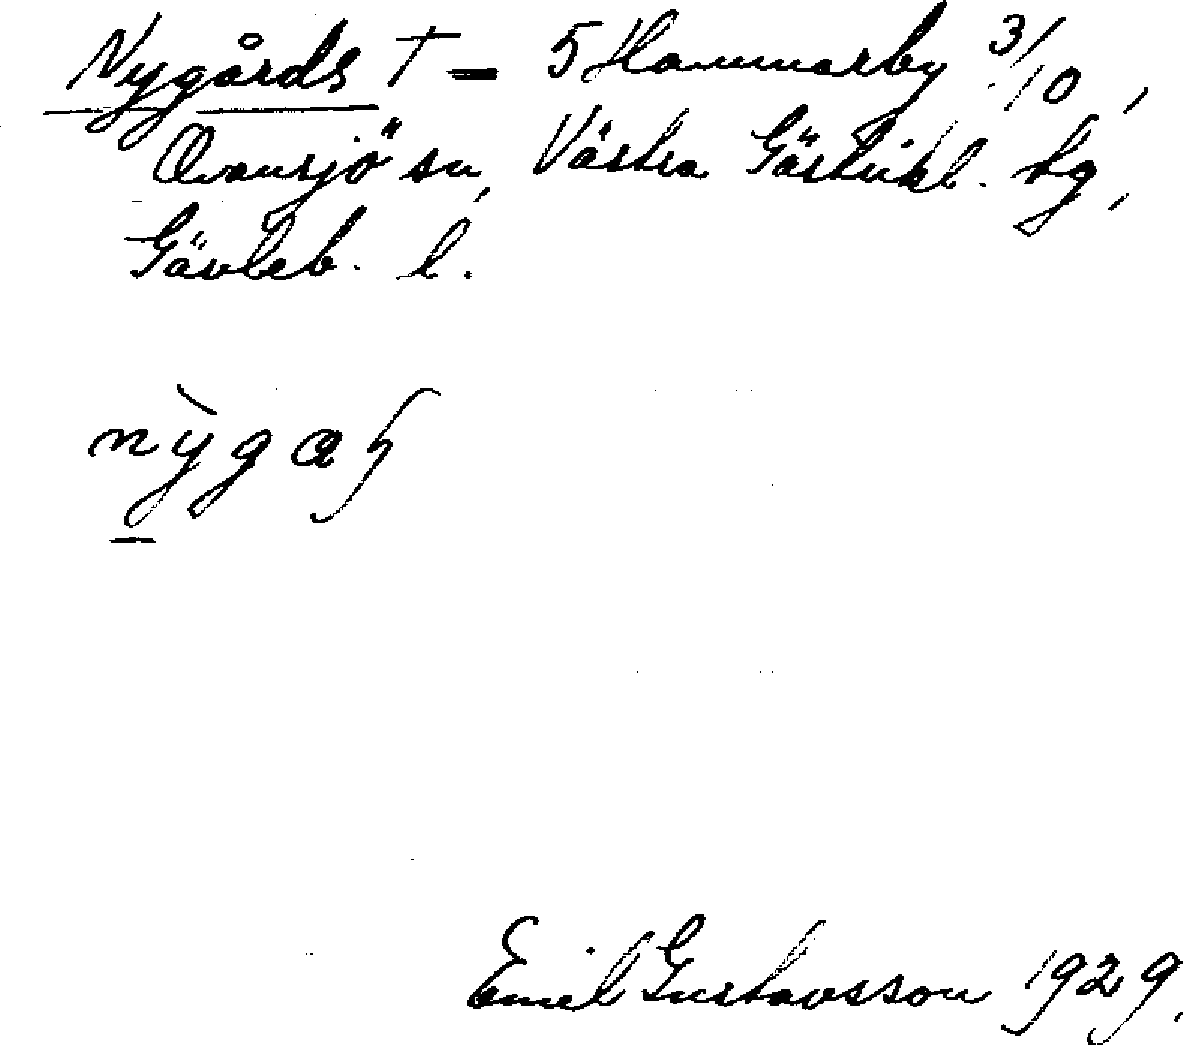 Nygårds T – 5 Hammarby 3/10,
Ovansjö sn, Västra Gästrikl. tg,
Gävleb. l.
nỳgaʂ
Emil Gustavsson 1929.